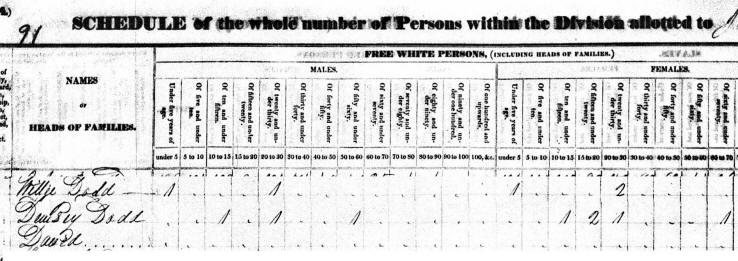 91
SCHEDULE of the whole number of Persons within the Division allotted to
FREE WHITE PERSONS, (INCLUDING HEADS OF FAMILIES.)
NAMES
OR
HEADS OF FAMILIES.
MALES.
FEMALES.
Under five years of age.
Of five and under ten.
Of ten and under fifteen.
Of fifteen and under twenty.
Of twenty and under thirty.
Of thirty and under forty.
Of forty and under fifty.
Of fifty and under sixty.
Of sixty and under seventy.
Of seventy and under eighty.
Of eighty and under ninety.
Of ninety and under one hundred.
Of one hundred and upwards.
Under five years of age.
Of five and under ten.
Of ten and under fifteen.
Of fifteen and under twenty.
Of twenty and under thirty.
Of thirty and under forty.
Of forty and under fifty.
Of fifty and under sixty.
Of sixty and under seventy.
under 5 5 to 10 10 to 15 15 to 20 20 to 30 30 to 40 40 to 50 50 to 60 60 to 70 70 to 80 80 to 90 90 to 100 100, &c. under 5 5 to 10 10 to 15 15 to 20 20 to 30 30 to 40 40 to 50 50 to 60 60 to 70
Dodd 1 1 1 2
Dempsey Dodd 1 1 1 1 2 1 1
David